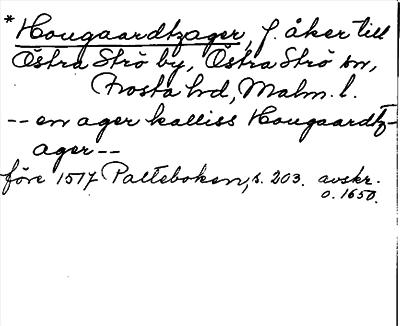 *Hougaardtzager, f. åker till
Östra Strö by, Östra Strö sn,
Frosta hd, Malm. l.
-- en ager kalliss Hougaardtz-
ager --
före 1517 Palteboken, s. 203. avskr.
o. 1650.